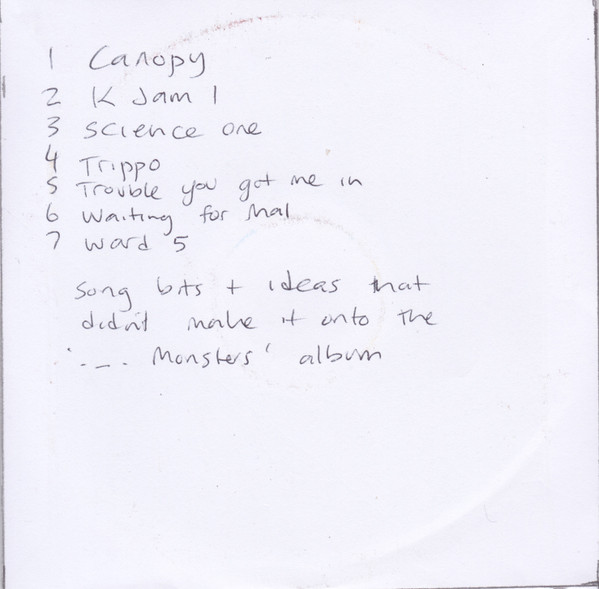 1 Canopy
2 K Jam 1
3 Science one
4 Trippo
5 Trouble you got me in
6 Waiting for Mal
7 Ward 5
Song bits + ideas that
didn't make it onto the
'.... Monsters' album